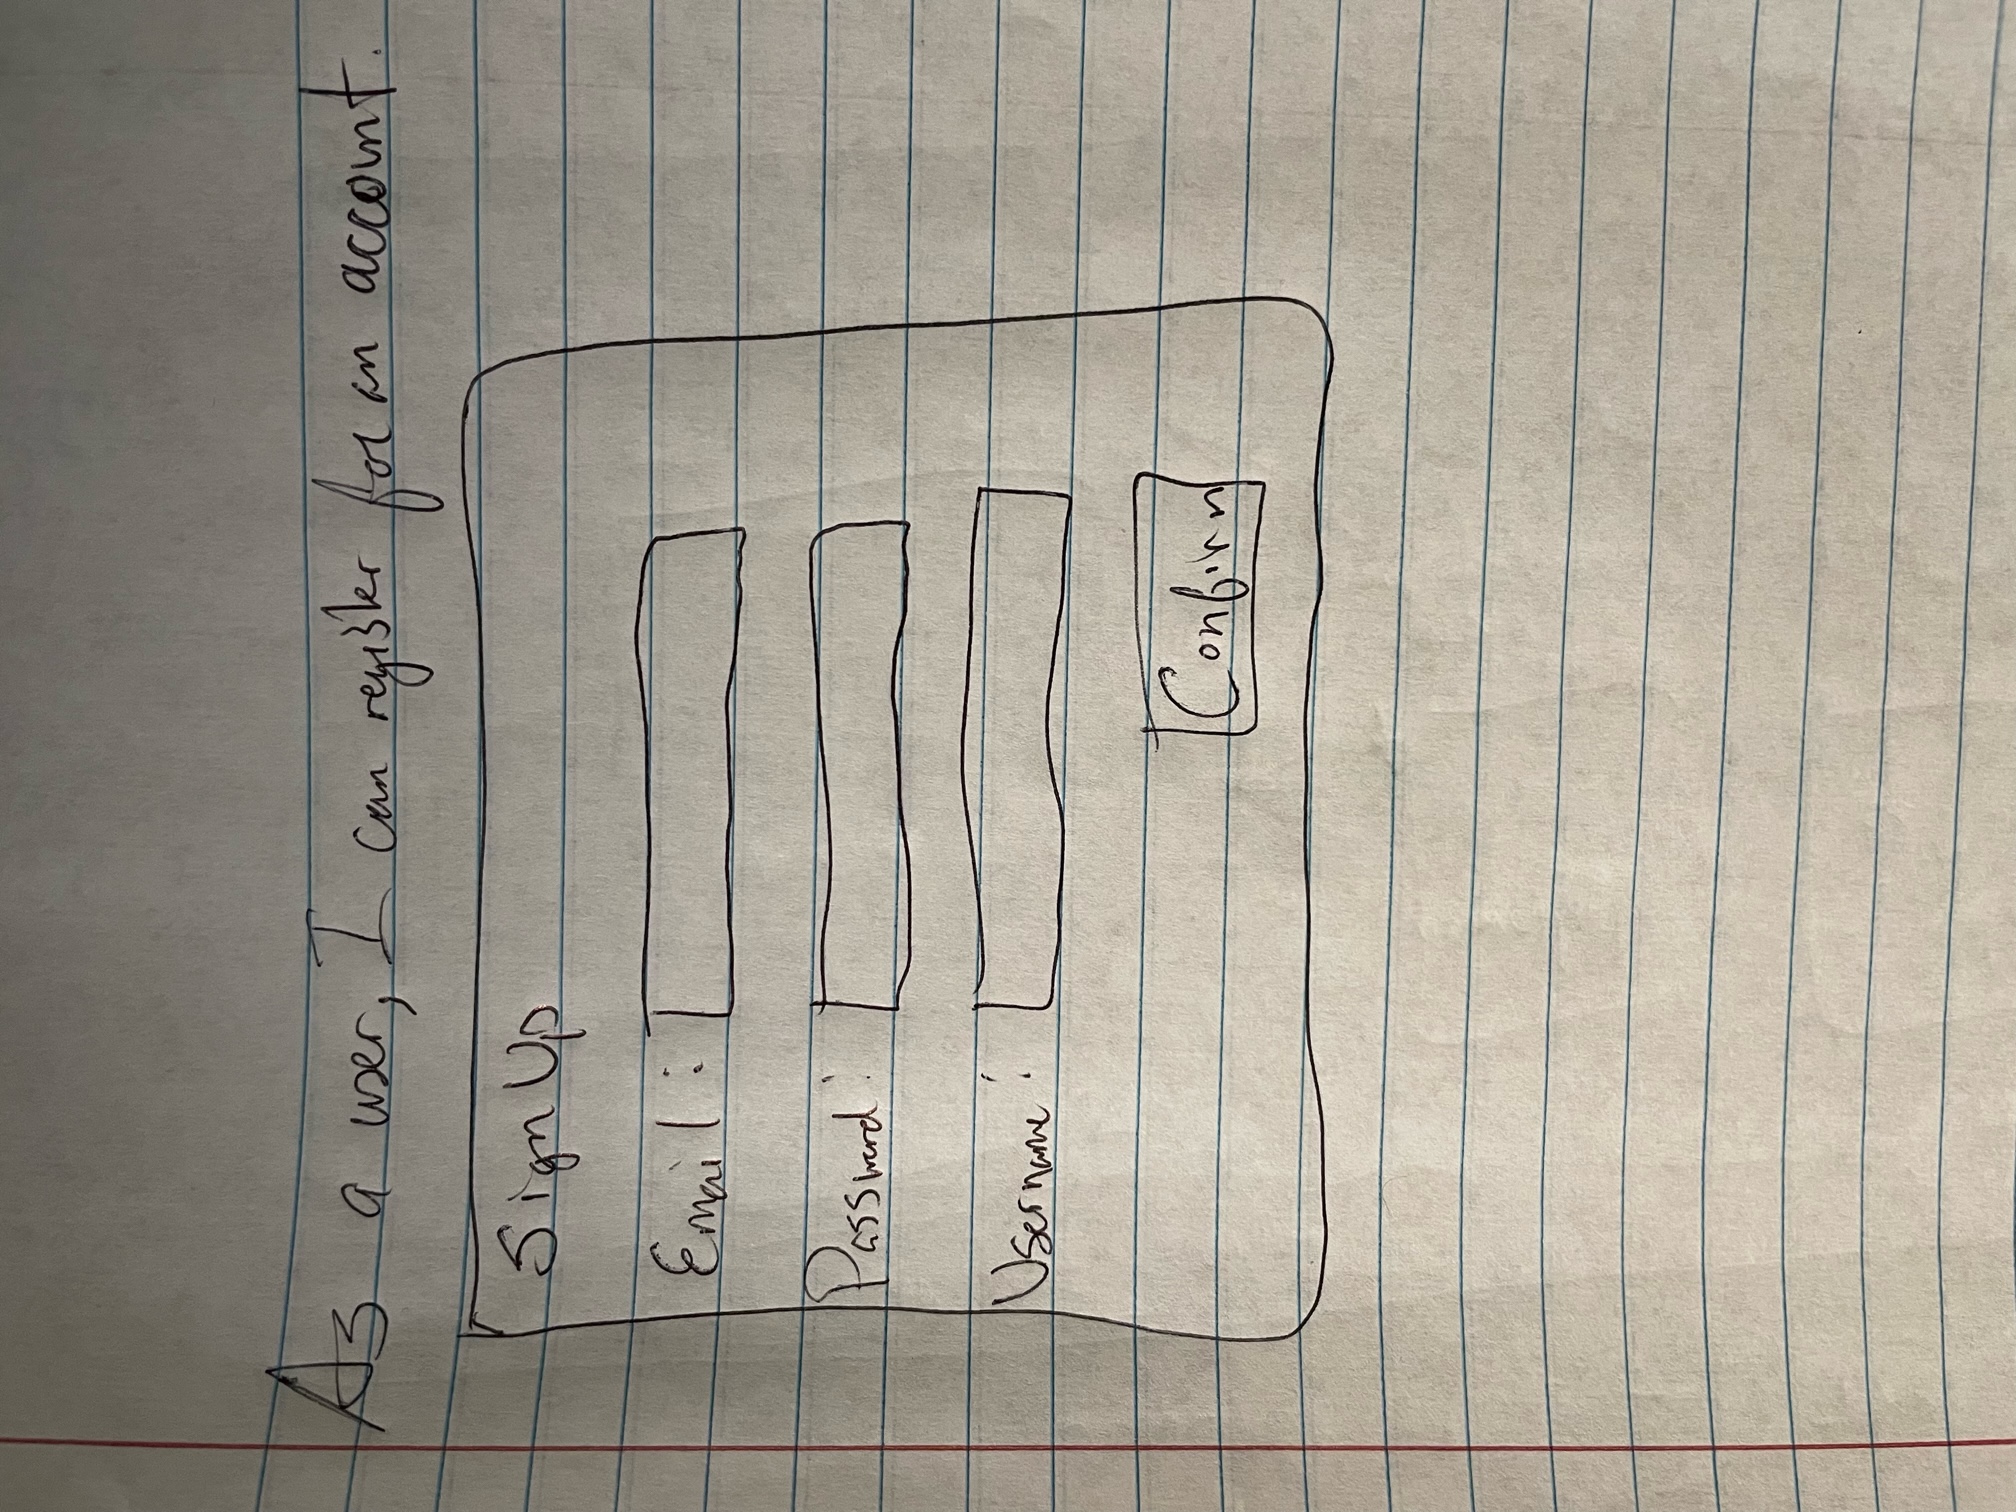 As a user, I can register for an account.
Sign Up
Email:
Password:
Username:
Confirm